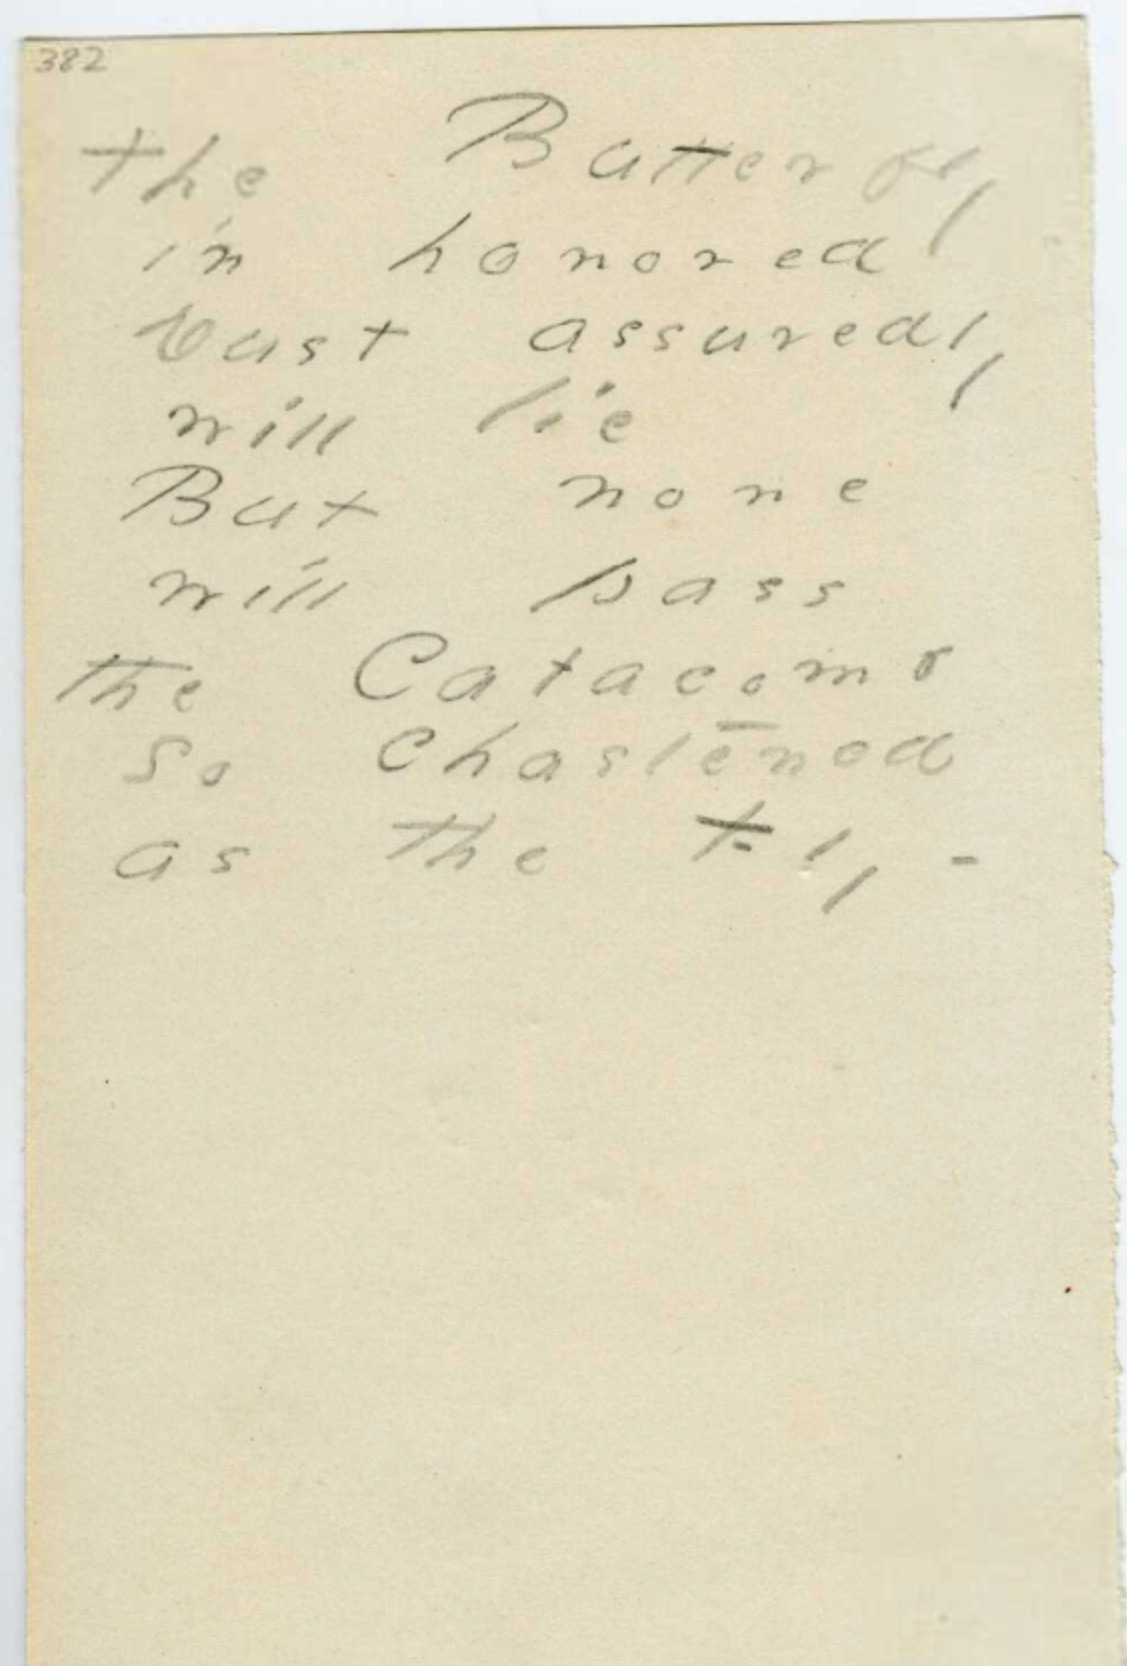 382
The Butterfly
in honored
Dust assuredly
will lie
But none
will pass
the Catacomb
So chastened
as the Fly -